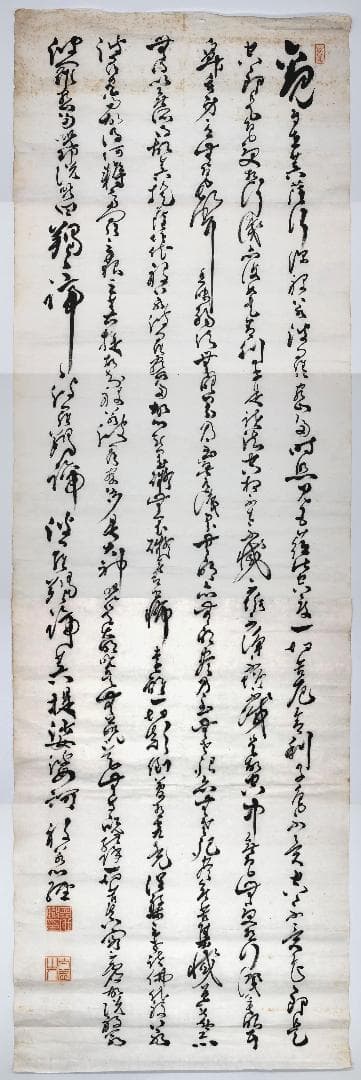 觀自在菩薩行深般若波羅蜜多時照見五蘊皆空度一切苦厄舍利子色不異空空不異色色即是
空空即是色受想行識亦復如是舍利子是諸法空相不生不滅不垢不淨不增不減是故空中無色無受想行識無眼耳
鼻舌身意無色聲香味觸法無眼界乃至無意識界無無明亦無無明盡乃至無老死亦無老死盡無苦集滅道無智亦
無得以無所得故菩提薩埵依般若波羅蜜多故心無罣礙無罣礙故無有恐怖遠離一切顛倒夢想究竟涅槃三世諸佛依般若
波羅蜜多故得阿耨多羅三藐三菩提故知般若波羅蜜多是大神咒是大明咒是無上咒是無等等咒能除一切苦真實不虛故說般若
波羅蜜多咒即說咒曰羯諦羯諦波羅羯諦波羅僧羯諦菩提娑婆訶般若心經